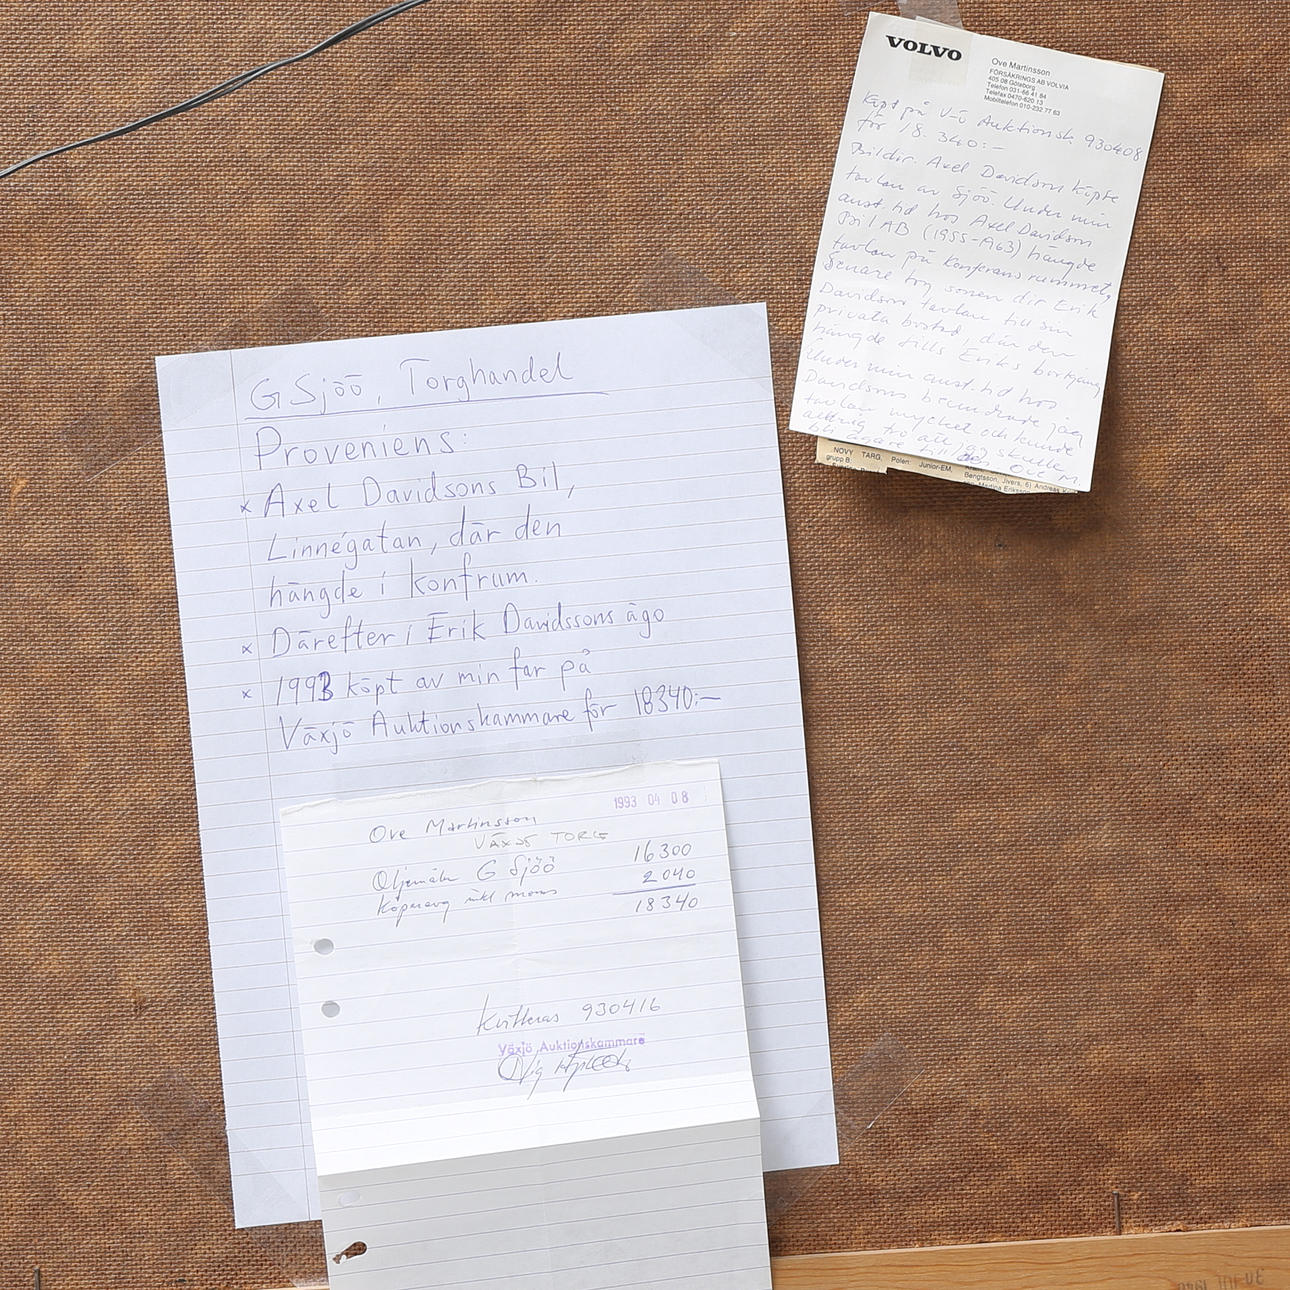 VOLVO
Ove Martinsson
FÖRSÄKRINGS AB VOLVIA
405 08 Göteborg
Telefon 031-66 41 84
Telefax 0470-620 13
Mobiltelefon 010-232 77 63
Köpt på V-ö Auktionsk. 930408
för 18.340:-
Bildir. Axel Davidson köpte
tavlan av Sjöö. Under min
anst.tid hos Axel Davidson
Bil AB (1955-1963) hängde
tavlan på konferensrummet,
Senare tog sonen dir Erik
Davidson tavlan till sin
privata bostad, där den
hängde tills Eriks bortgång.
Under min anst.tid hos
Davidsons beundrade jag
tavlan mycket och kunde
aldrig tro att jag skulle
bli ägare till den. Ove
M.
NOVY TARG, Polen: Junior-EM,
grupp B.
Bengtsson, Jivers, 6) Andreas
Martina Eriksson
G Sjöö, Torghandel
Proveniens:
x Axel Davidsons Bil,
Linnégatan, där den
hängde i konfrum.
x Därefter i Erik Davidssons ägo
x 1993 köpt av min far på
Växjö Auktionskammare för 18340:-
1993 04 08
Ove Martinsson
VÄXJÖ TORG
Oljemåln G Sjöö 16300
Köparavg inkl moms 2040
18340
Kvitteras 930416
Växjö Auktionskammare